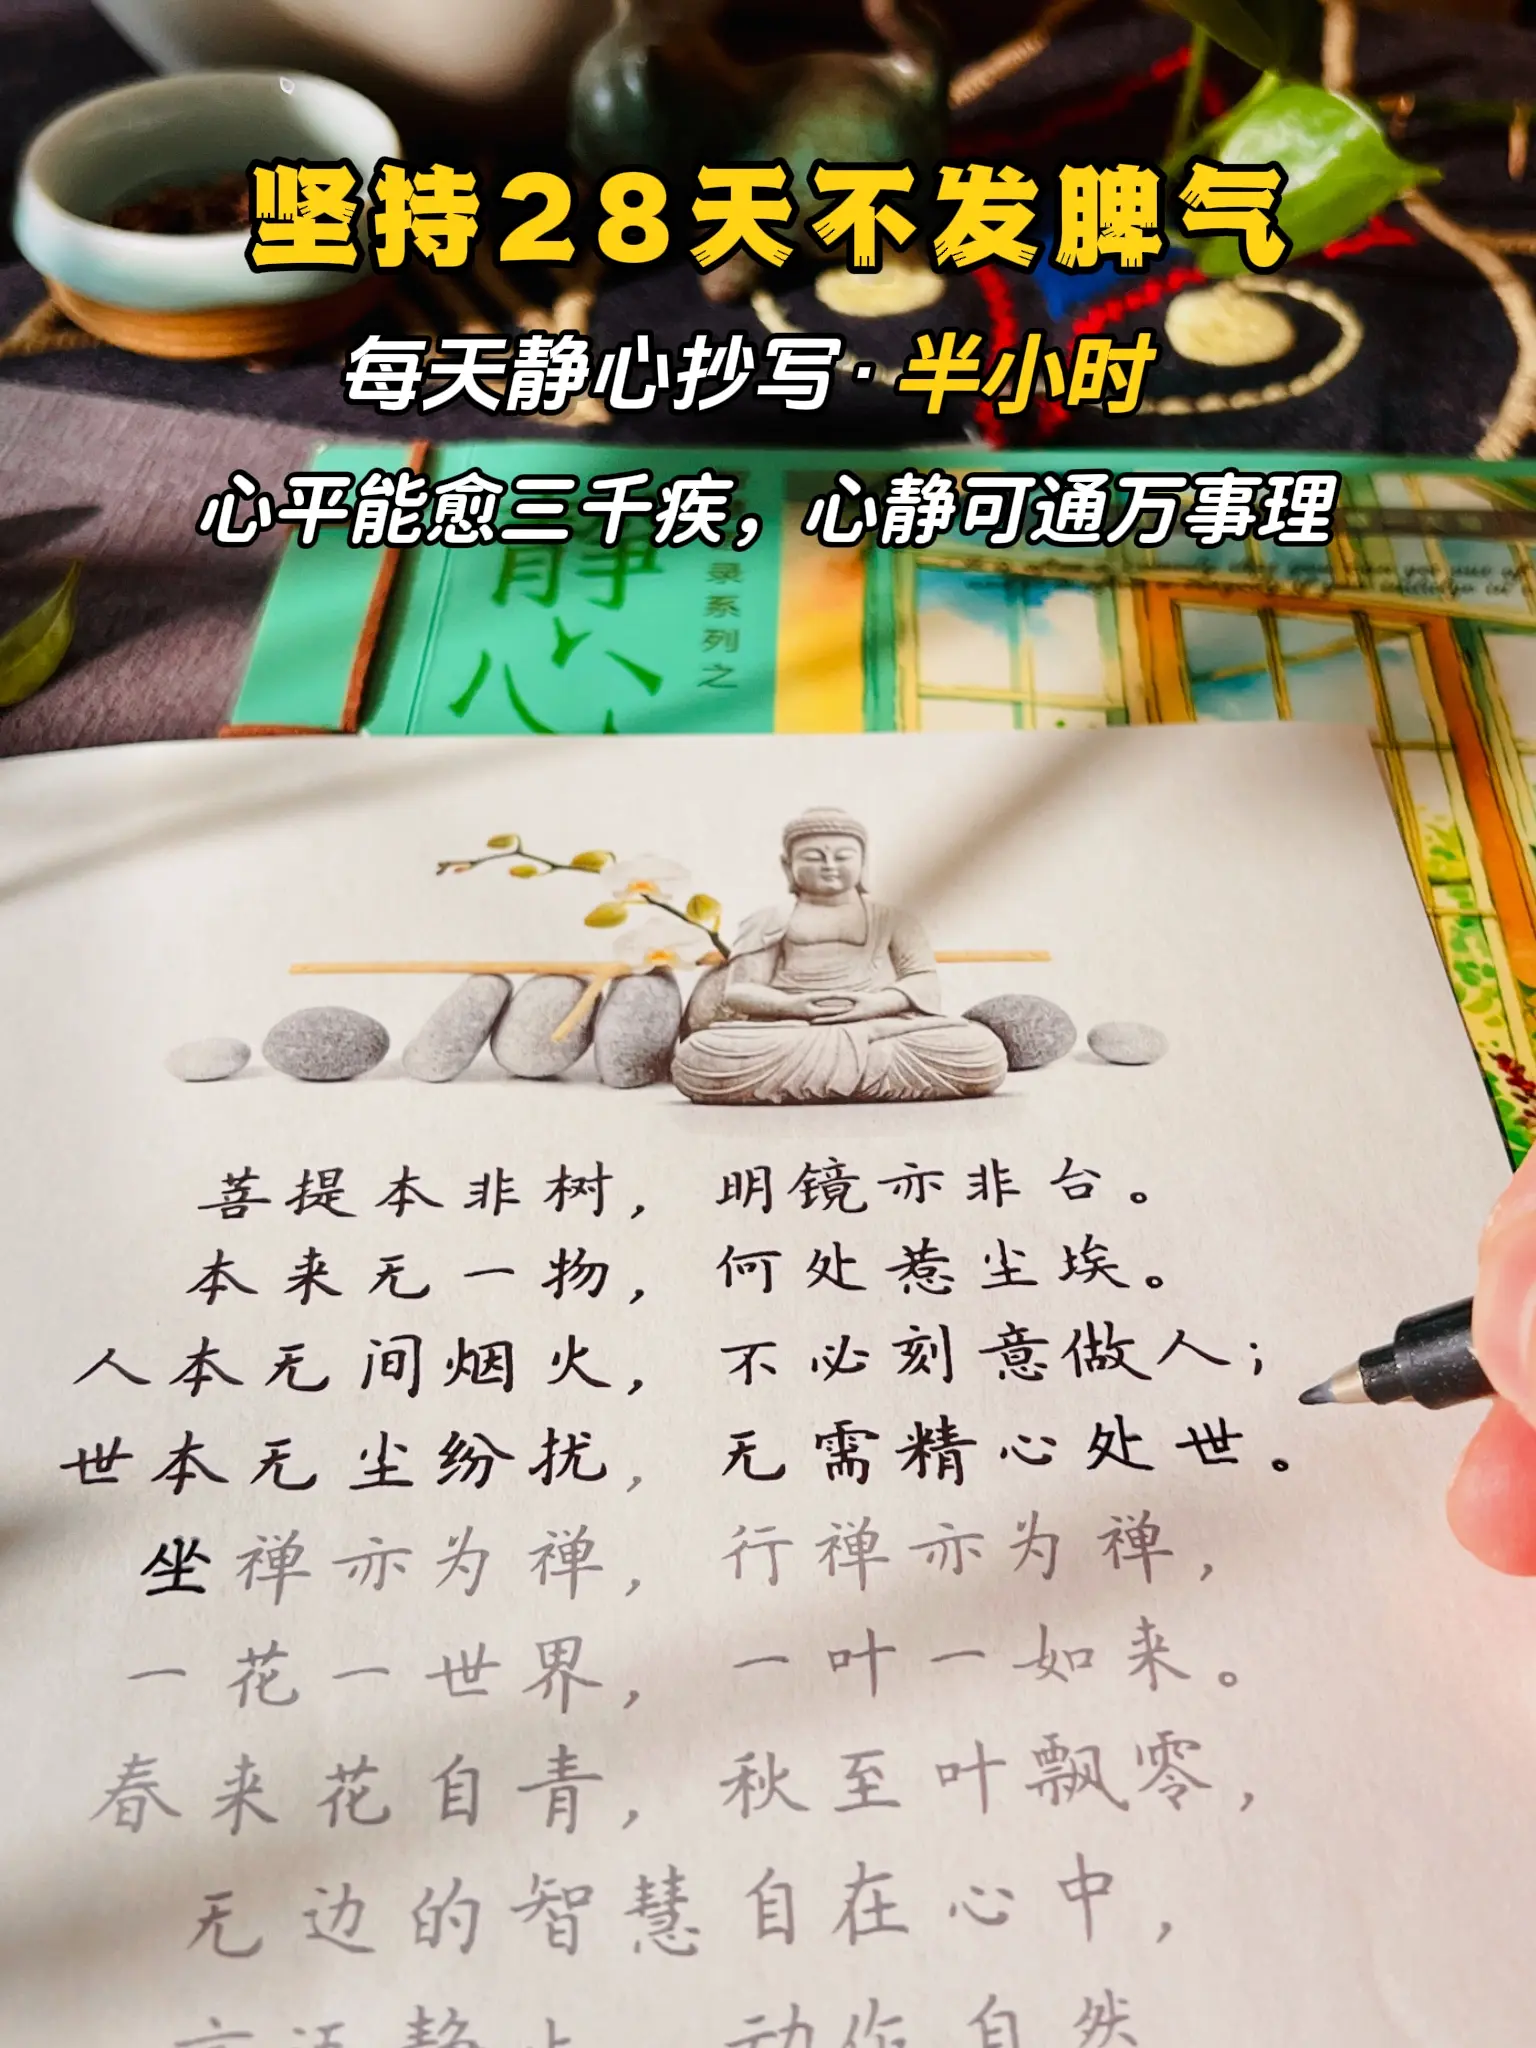 坚持28天不发脾气
每天静心抄写·半小时
心平能愈三千疾，心静可通万事理
静心
录系列之
菩提本非树，明镜亦非台。
本来无一物，何处惹尘埃。
人本无间烟火，不必刻意做人；
世本无尘纷扰，无需精心处世。
坐禅亦为禅，行禅亦为禅，
一花一世界，一叶一如来。
春来花自青，秋至叶飘零，
无边的智慧自在心中，